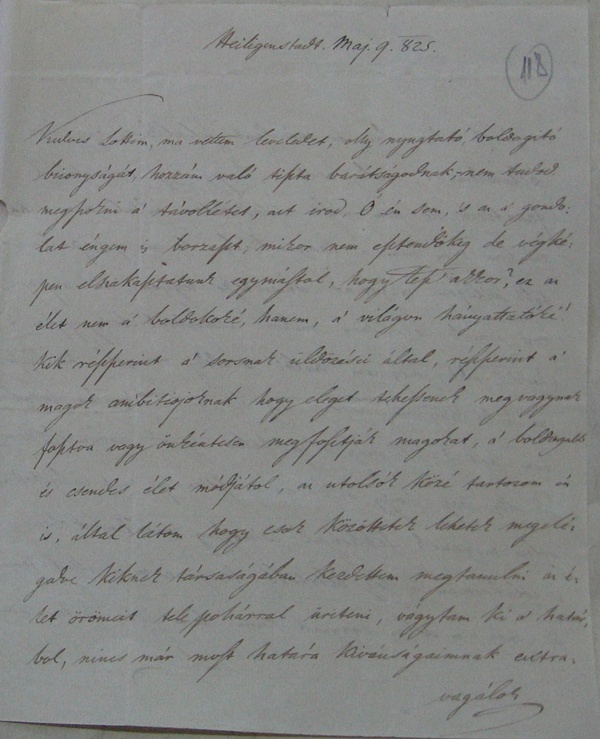 Heiligenstadt. Maj. 9. 825.
118
Kedves Lottim, ma vettem leveledet, oly nyugtató, boldogitó
bizonyságát, hozzám való tiszta barátságodnak, nem tudod
megszokni á távollétet, azt irod, Ó én sem, is az á gondo-
lat éngem is borzaszt, mikor nem esztendőkig de végké-
pen elszakasztatunk egymástol, hogy lesz akkor? ez az
élet nem á boldogoké, hanem, á világon hányattatóké
kik részszerint á sorsnak üldozései által, részszerint á
magok ambitiojoknak hogy eleget tehessenek meg vagynak
fosztva vagy önkéntesen megfosztják magokat, á boldogabb
és csendes élet módjátol, az utolsók közé tartozom én
is, által látom hogy csak közöttetek lehetek megelé-
gedve kiknek társaságában kezdettem megtanulni az é-
let örömeit tele pohárral üriteni, vágytam ki á határ-
bol, nincs már most határa kivánságaimnak extra-
vagálok